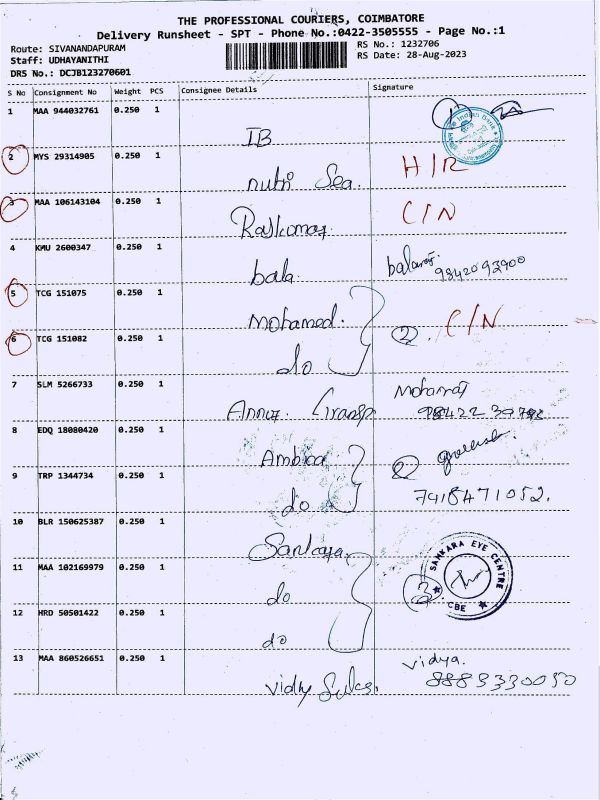 THE PROFESSIONAL COURIERS, COIMBATORE
Delivery Runsheet - SPT - Phone No.:0422-3505555 - Page No.:1
Route: SIVANANDAPURAM
RS No.: 1232706
Staff: UDHAYANITHI
RS Date: 28-Aug-2023
DRS No.: DCJB123270601
S No Consignment No Weight PCS Consignee Details Signature
1 MAA 944032761 0.250 1
IB
2 MYS 29314905 0.250 1
nutri Sea. H/R
3 MAA 106143104 0.250 1
Rajkumar C/N
4 KMU 2600347 0.250 1
bala.
5 TCG 151075 0.250 1
Mohamed.
6 TCG 151082 0.250 1
do 2. C/N
7 SLM 5266733 0.250 1
Annur. Transp
8 EDQ 18080420 0.250 1
Ambica
9 TRP 1344734 0.250 1
do 2 7418471052.
10 BLR 150625387 0.250 1
Sankara
11 MAA 102169979 0.250 1
do 3 SANKARA EYE CENTRE CBE
12 HRD 50501422 0.250 1
do
13 MAA 860526651 0.250 1
vidya.